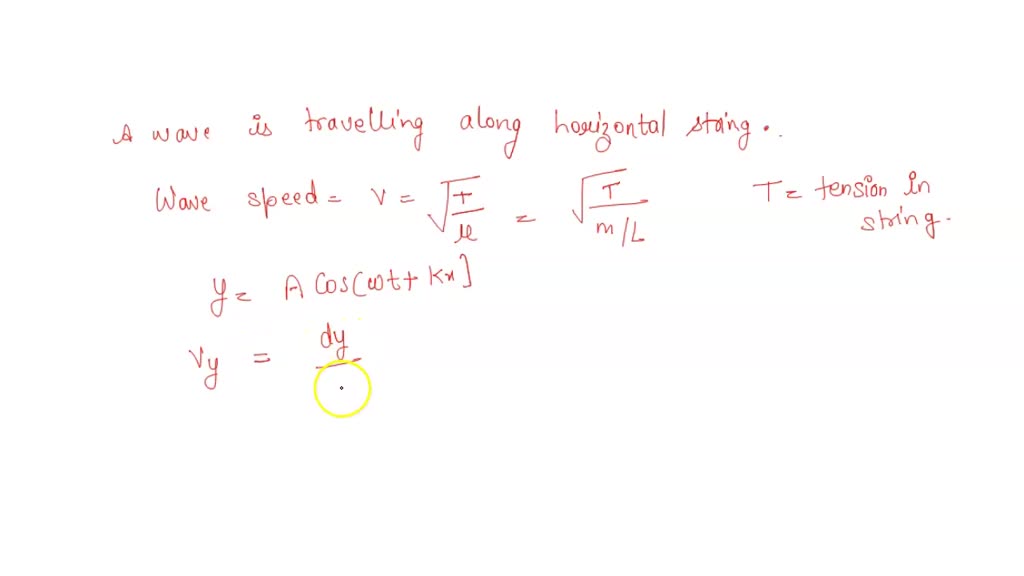 A wave is travelling along horizontal string.
Wave speed = v = √(T/μ) = √(T/(m/L)) T = tension in string.
y = A Cos[ωt + Kx]
Vy = dy/